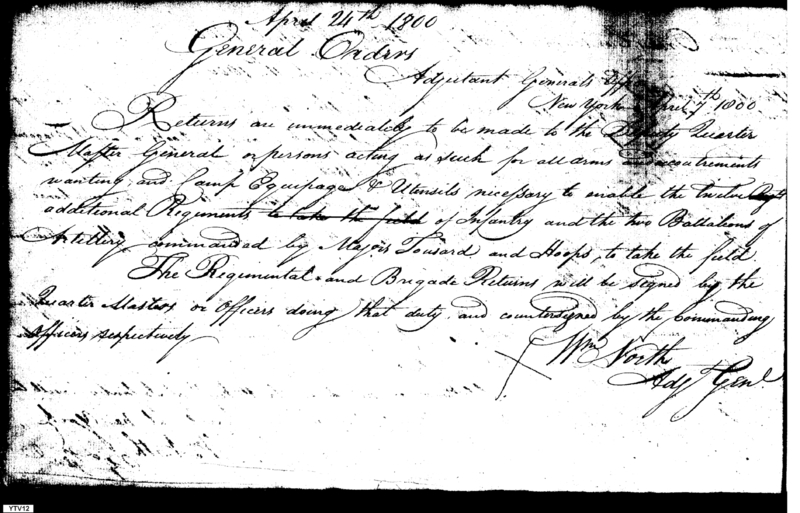 April 24th 1800
General Orders
Adjutant Generals Off
New York April 7th 1800
Returns are immediately to be made to the Deputy Quarter
Master General or persons acting as such for all arms Accoutrements
wanting and Camp Equipage & Utensils necessary to enable the twelve
additional Regiments to take the field of Infantry and the two Battalions of
Artillery commanded by Majors Tousard and Hoops, to take the field.
The Regimental and Brigade Returns will be signed by the
Quarter Masters or Officers doing that duty and countersigned by the commanding
officers respectively
Wm North
Adj Genl.
YTV12